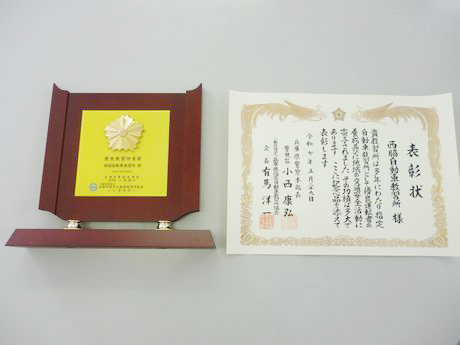 優良教習所表彰
西脇自動車教習所 様
表彰状
西脇自動車教習所 様
貴教習所は多年にわたり指定
自動車教習所として優良運転者の
養成並びに地域の交通安全活動に
尽力されました その功績は多大で
あります ここに記念品を添えて
表彰します
令和七年五月二十九日
兵庫県警察本部長
警視監 小西康弘
会長 有馬洋一